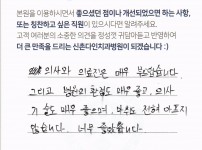 본원을 이용하시면서 좋으셨던 점이나 개선되었으면 하는 사항,
또는 칭찬하고 싶은 직원이 있으시다면 말씀해주세요.
고객 여러분의 소중한 의견을 정성껏 귀담아듣고 반영하여
더 큰 만족을 드리는 신촌다인치과병원이 되겠습니다 :)
의사와 의료진은 매우 친절합니다.
그리고 병원의 환경도 매우 좋고, 의사
기술도 매우 좋으며, 전혀 아프지
않습니다. 너무 좋았습니다.